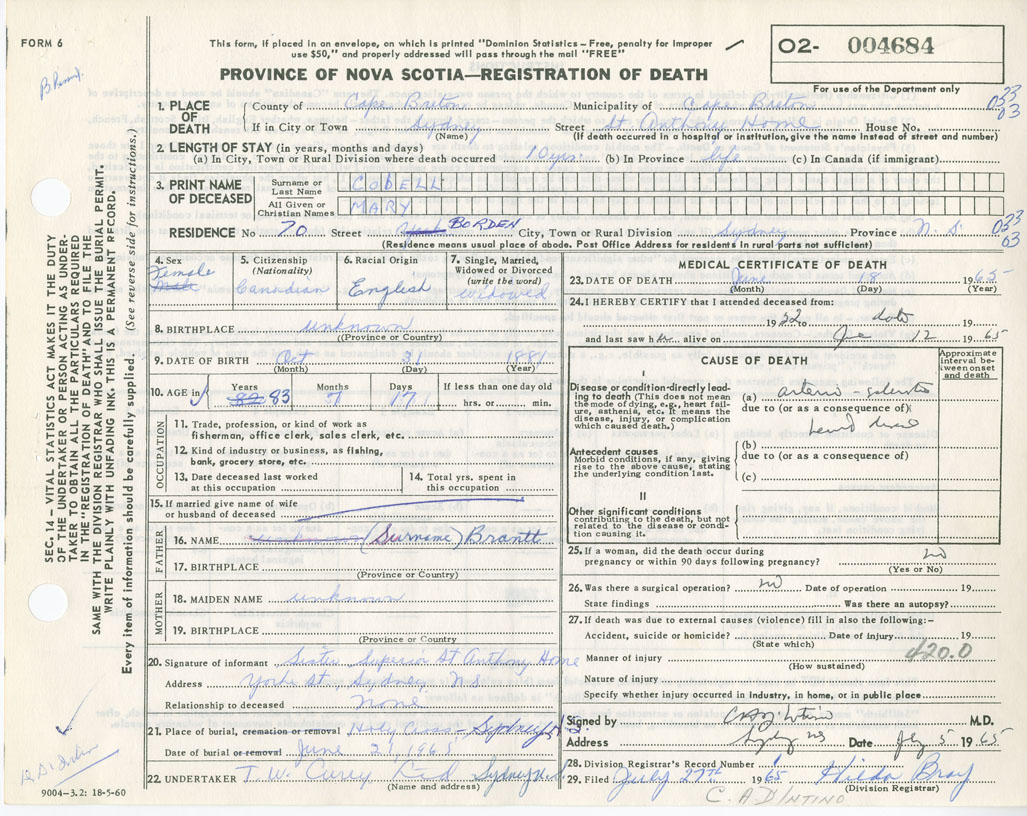 FORM 6
This form, if placed in an envelope, on which is printed "Dominion Statistics – Free, penalty for improper
use $50," and properly addressed will pass through the mail "FREE"
O2- 004684
For use of the Department only
PROVINCE OF NOVA SCOTIA—REGISTRATION OF DEATH
SEC. 14 – VITAL STATISTICS ACT MAKES IT THE DUTY
OF THE UNDERTAKER OR PERSON ACTING AS UNDER-
TAKER TO OBTAIN ALL THE PARTICULARS REQUIRED
IN THE "REGISTRATION OF DEATH" AND TO FILE THE
SAME WITH THE DIVISION REGISTRAR WHO SHALL ISSUE THE BURIAL PERMIT.
WRITE PLAINLY WITH UNFADING INK–THIS IS A PERMANENT RECORD.
Every item of information should be carefully supplied. (See reverse side for instructions.)
1. PLACE OF DEATH
County of Cape Breton Municipality of Cape Breton 033
If in City or Town Sydney Street St Anthony Home House No. 03
(Name) (If death occurred in a hospital or institution, give the name instead of street and number)
2. LENGTH OF STAY (in years, months and days)
(a) In City, Town or Rural Division where death occurred 10 yrs. (b) In Province life (c) In Canada (if immigrant)
3. PRINT NAME OF DECEASED
Surname or Last Name CODELL
All Given or Christian Names MARY
RESIDENCE No 70 Street BORDEN City, Town or Rural Division Sydney Province N. S. 033
(Residence means usual place of abode. Post Office Address for residents in rural parts not sufficient) 03
4. Sex Female Male
5. Citizenship (Nationality) Canadian
6. Racial Origin English
7. Single, Married, Widowed or Divorced (write the word) widowed
8. BIRTHPLACE unknown
(Province or Country)
9. DATE OF BIRTH Oct 31 1881
(Month) (Day) (Year)
10. AGE in Years 83 Months 7 Days 17 If less than one day old
hrs. or min.
OCCUPATION
11. Trade, profession, or kind of work as
fisherman, office clerk, sales clerk, etc.
12. Kind of industry or business, as fishing,
bank, grocery store, etc.
13. Date deceased last worked
at this occupation
14. Total yrs. spent in
this occupation
15. If married give name of wife
or husband of deceased
FATHER
16. NAME unknown (Surname) Brantt
17. BIRTHPLACE
(Province or Country)
MOTHER
18. MAIDEN NAME unknown
19. BIRTHPLACE
(Province or Country
20. Signature of informant Sister Superior St Anthony Home
Address York St, Sydney, N.S.
Relationship to deceased None
21. Place of burial, cremation or removal Holy Cross - Sydney N.S.
Date of burial or removal June 21, 1965
22. UNDERTAKER T. W. Curry Ltd Sydney N.S.
(Name and address)
9004–3.2: 18-5-60
MEDICAL CERTIFICATE OF DEATH
23. DATE OF DEATH June 18 1965
(Month) (Day) (Year)
24. I HEREBY CERTIFY that I attended deceased from:
1952 date 19
and last saw her alive on June 12 1965
CAUSE OF DEATH
Approximate interval between onset and death
I
Disease or condition directly leading to death (This does not mean the mode of dying, e.g., heart failure, asthenia, etc. It means the disease, injury, or complication which caused death.)
(a) arterio-sclerotic
due to (or as a consequence of)
heart disease
(b)
due to (or as a consequence of)
Antecedent causes
Morbid conditions, if any, giving rise to the above cause, stating the underlying condition last.
(c)
II
Other significant conditions
contributing to the death, but not related to the disease or condition causing it.
25. If a woman, did the death occur during
pregnancy or within 90 days following pregnancy? no
(Yes or No)
26. Was there a surgical operation? no Date of operation 19
State findings Was there an autopsy?
27. If death was due to external causes (violence) fill in also the following:–
Accident, suicide or homicide? Date of injury 19
(State which)
420.0
Manner of injury
(How sustained)
Nature of injury
Specify whether injury occurred in industry, in home, or in public place
Signed by M.D.
Address Sydney NS Date July 5 1965
28. Division Registrar's Record Number
29. Filed July 27TH 1965 Hilda Bray
(Division Registrar)
C. A D'INTINO